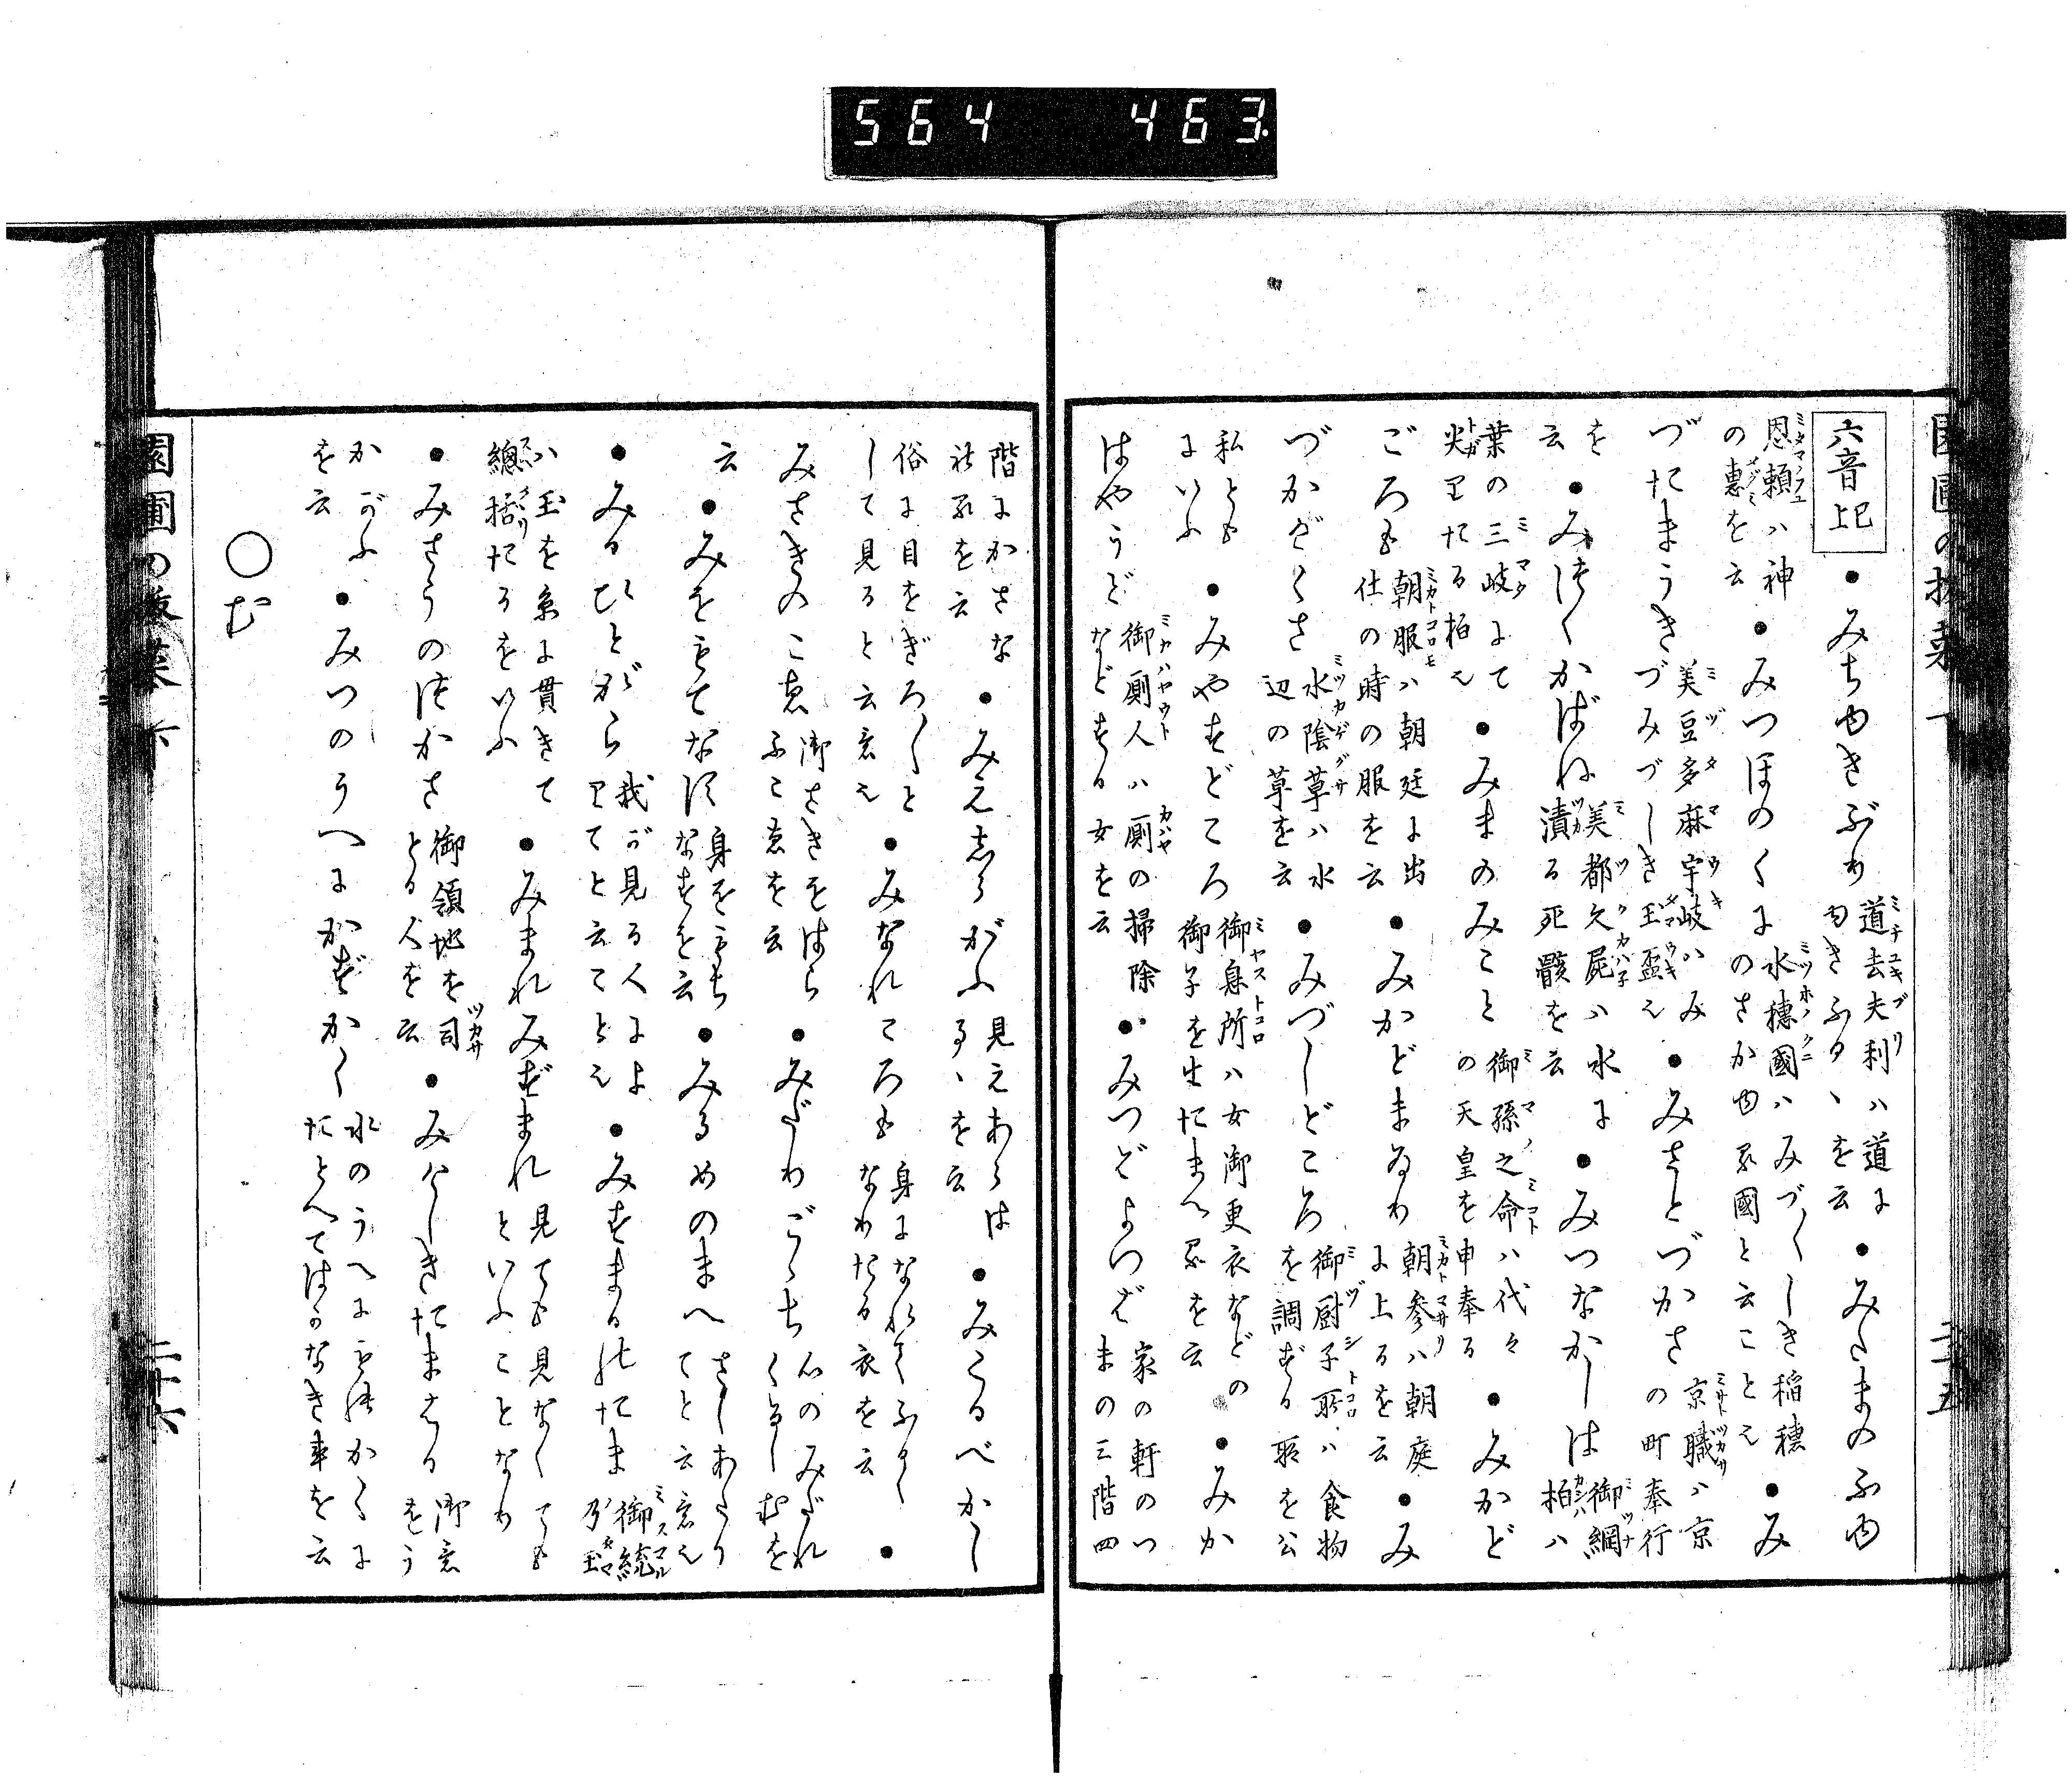 564 463.
六音已上
●みちゆきぶり 道去夫利ハ道にゆきふるゝを云 ●みたまのふゆ
恩頼ハ神の恵を云 ●みつほのくに 水穂國ハみづ〳〵しき稲穂のさかゆる國と云ことえ ●み
づたまうき 美豆多麻宇岐ハみづみづしき玉盃え ●みさとづかさ 京職ハ京の町奉行
を云 ●みつくかばね 美都久屍ハ水に漬る死骸を云 ●みつなかしは 御綱柏ハ
葉の三岐にて尖りたる柏え ●みまのみこと 御孫之命ハ代々の天皇を申奉る ●みかど
ごろも 朝服ハ朝廷に出仕の時の服を云 ●みかどまゐり 朝参ハ朝庭に上るを云 ●み
づかげくさ 水陰草ハ水辺の草を云 ●みづしどころ 御厨子所ハ食物を調ずる所を公
私ともにいふ ●みやすどころ 御息所ハ女御更衣などの御子を生たまへるを云 ●みか
はやうど 御厠人ハ厠の掃除などする女を云 ●みつどよつば 家の軒のつまの三階四
階にかさなれるを云 ●みえしらがふ 見えあらはるゝを云 ●みこるべかし
俗に目をぎろ〳〵として見ると云意え ●みなれころも 身になれてふるくなりたる衣を云 ●
みさきのこゑ 御さきをはらふこゑを云 ●みだりごゝち 心のみだれくるしむを
云 ●みをもてなす 身をもちなすを云 ●みるめのまへ さしあたりてと云意え
●みるひとがら 我が見る人によりてと云てとえ ●みすまるのたま 御統乃玉
ハ玉を糸に貫きて總括たるをいふ ●みまれみずまれ 見ても見なくてもといふことなり
●みさうのつかさ 御領地を司とる人を云 ●みけしきたまはる 御意をう
かゞふ ●みつのうへにかずかく 水のうへにものかくにたとへてはかなき事を云
を云
○む
園圃の撥菜 下
二十五
二十六